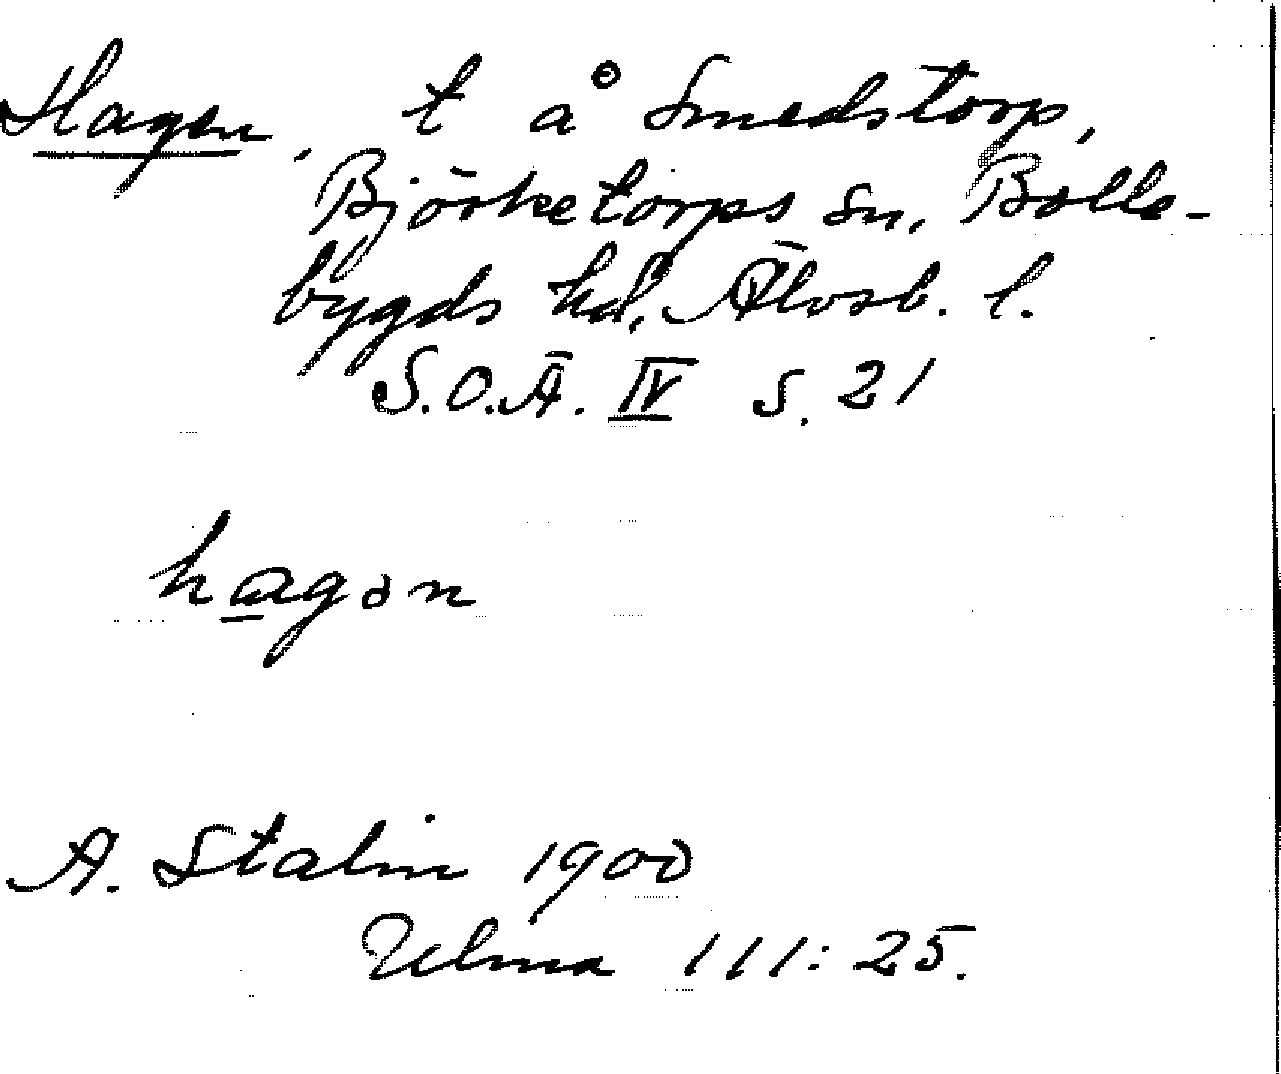 Hagen, t å Smedstorp,
Björketorps sn, Bolle-
bygds hd, Älvsb. l.
S.O.Ä. IV s. 21
hagən
A. Stalin 1900
Ulma 111:25.